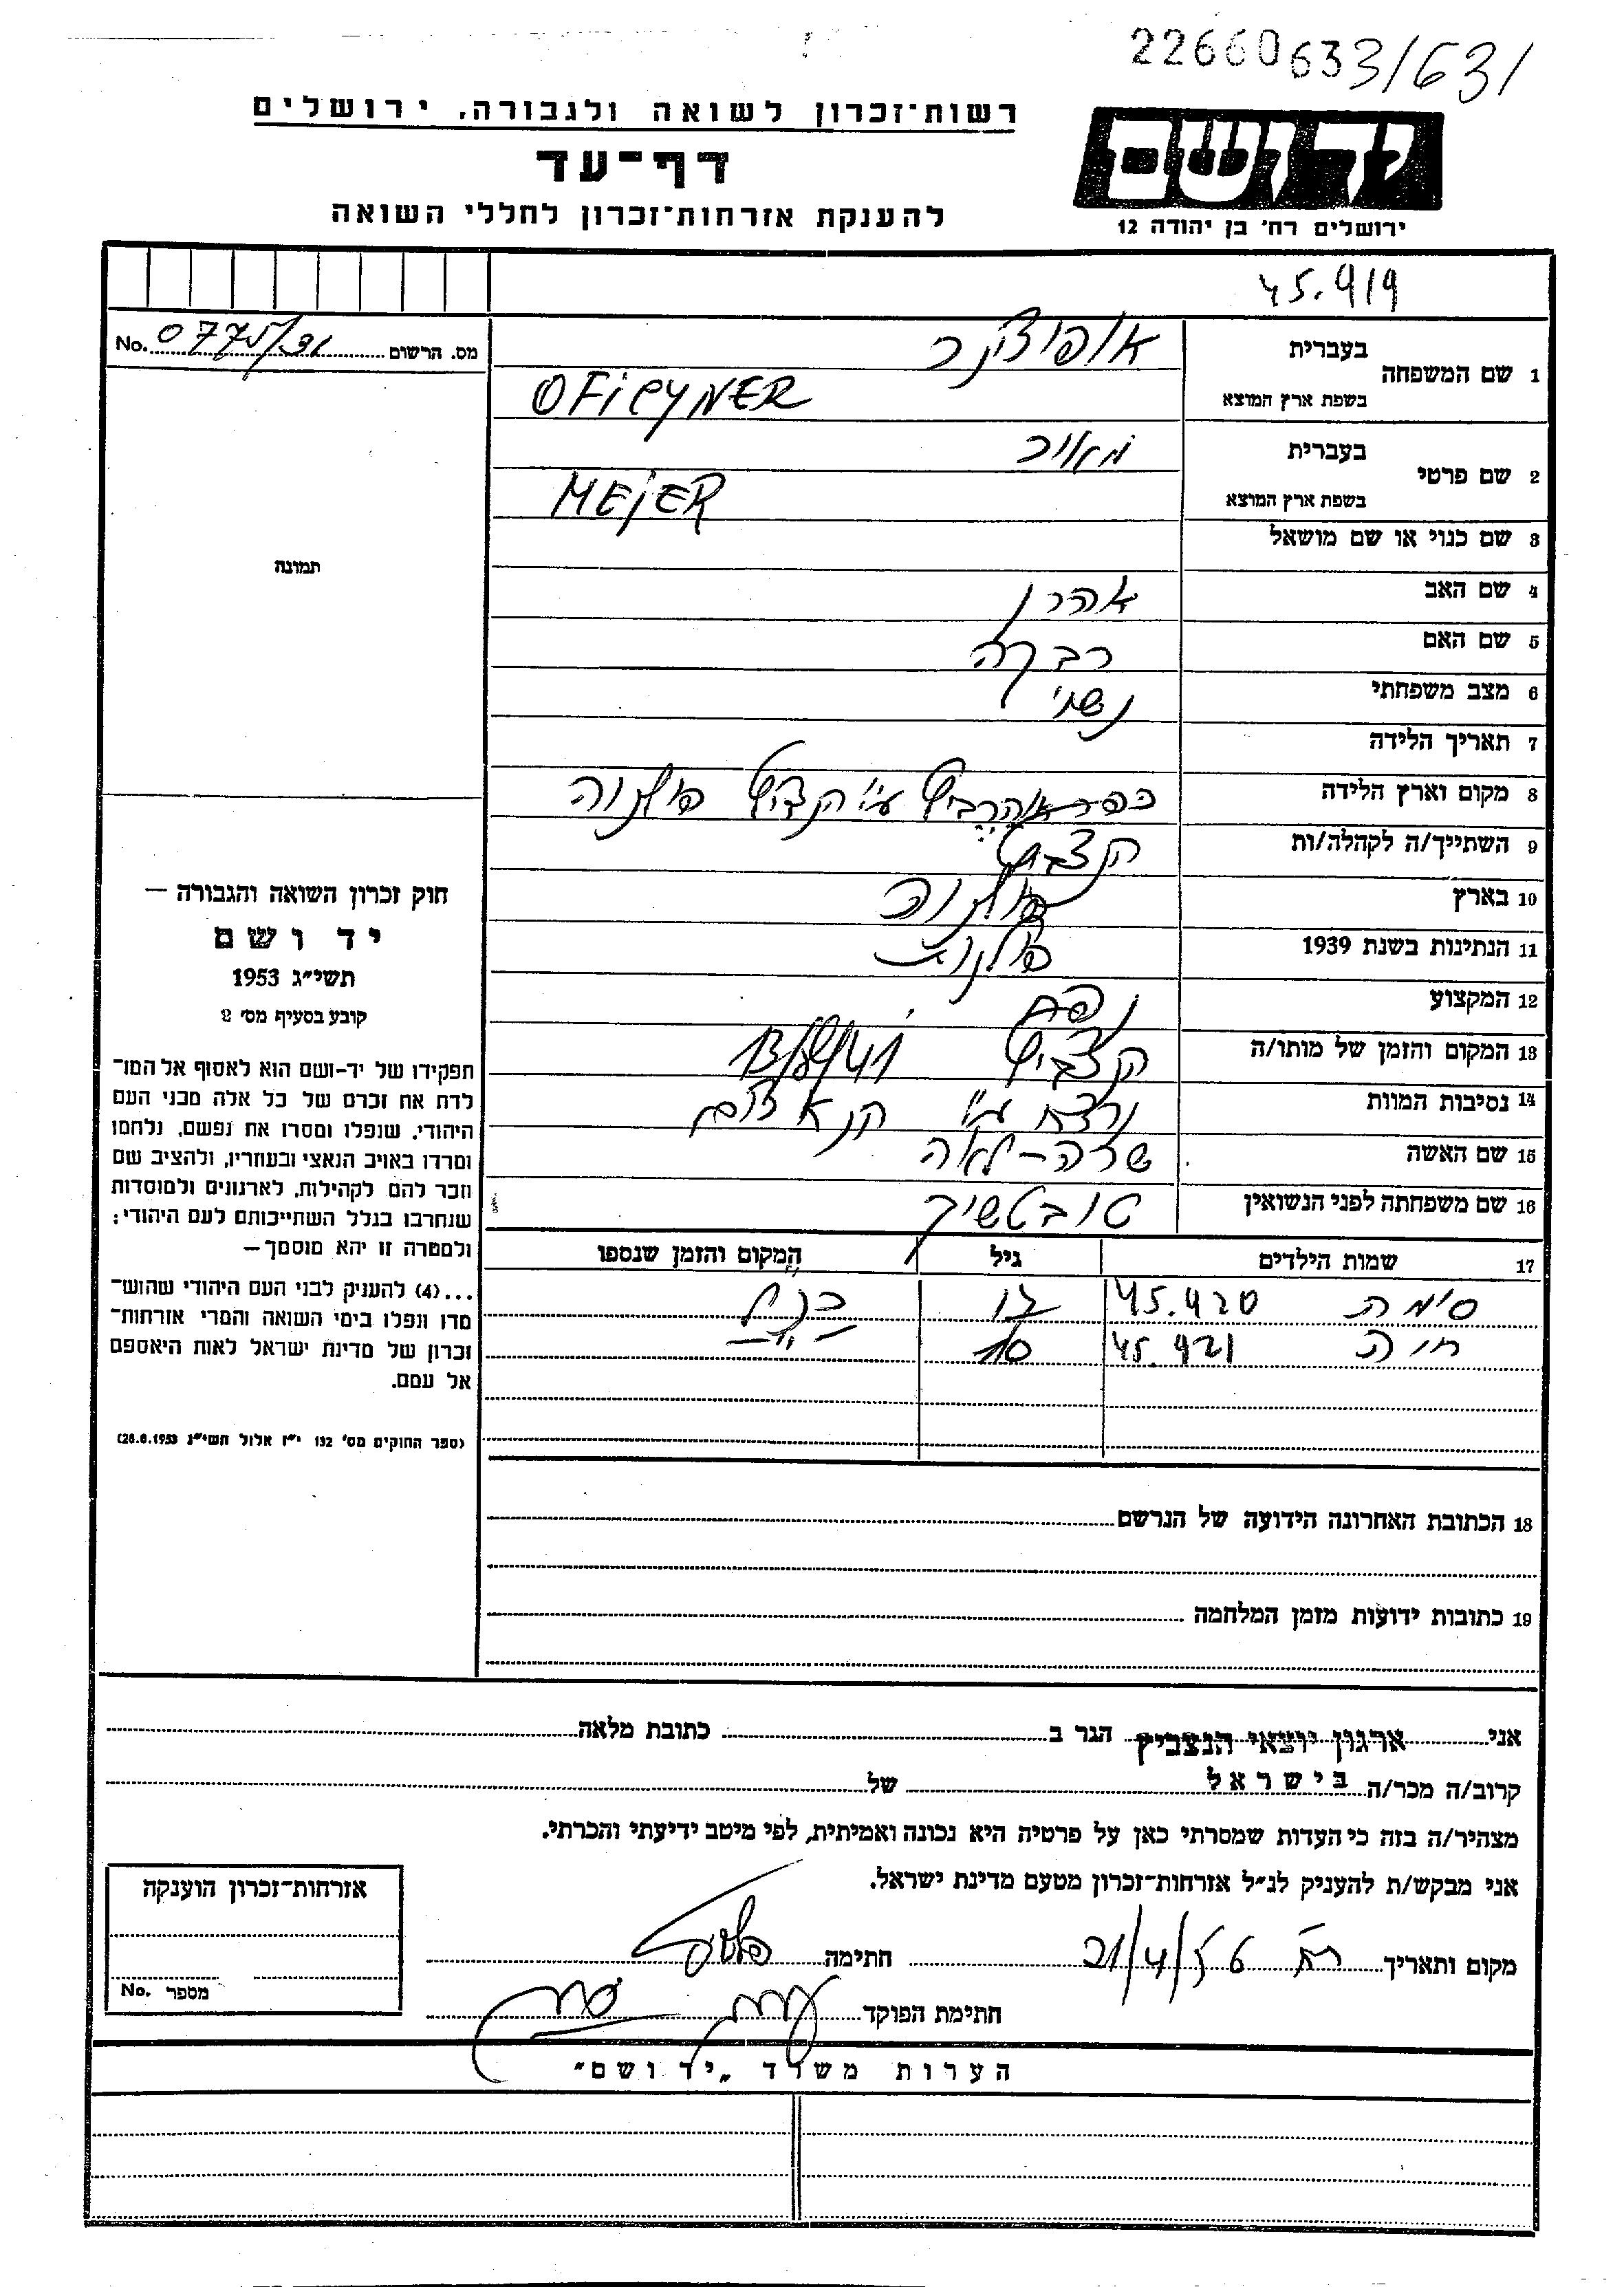 22660633/631
רשות־זכרון לשואה ולגבורה, ירושלים
דף־עד
להענקת אזרחות־זכרון לחללי השואה
יד ושם
ירושלים רח' בן יהודה 12
45.919
מס. הרשום No.
1 שם המשפחה
בעברית
בשפת ארץ המוצא OFICYNER
2 שם פרטי
בעברית מאיר
בשפת ארץ המוצא MEJER
3 שם כנוי או שם מושאל
4 שם האב אהרן
5 שם האם רבקה
6 מצב משפחתי נשוי
7 תאריך הלידה
8 מקום וארץ הלידה כפר ע"י פולניה
9 השתייך/ה לקהלה/ות
10 בארץ פולניה
11 הנתינות בשנת 1939 פולנית
12 המקצוע נפח
13 המקום והזמן של מותו/ה 13/8/41
14 נסיבות המוות נרצח ע"י הנאצים
15 שם האשה שרה-לאה
16 שם משפחתה לפני הנשואין
17 שמות הילדים גיל המקום והזמן שנספו
סימה 45.920 כנ"ל
חיה 45.921 -"-
18 הכתובת האחרונה הידועה של הנרשם
19 כתובות ידועות מזמן המלחמה
תמונה
חוק זכרון השואה והגבורה —
יד ושם
תשי״ג 1953
קובע בסעיף מס׳ 2
תפקידו של יד-ושם הוא לאסוף אל המו־
לדת את זכרם של כל אלה מבני העם
היהודי, שנפלו ומסרו את נפשם, נלחמו
ומרדו באויב הנאצי ובעוזריו, ולהציב שם
וזכר להם לקהילות, לארגונים ולמוסדות
שנחרבו בגלל השתייכותם לעם היהודי;
ולמטרה זו יהא מוסמך—
...(4) להעניק לבני העם היהודי שהוש־
מדו ונפלו בימי השואה והמרי אזרחות־
זכרון של מדינת ישראל לאות היאספם
אל עמם.
(ספר החוקים מס׳ 132 י״ז אלול תשי״ג 28.8.1953)
אני ארגון יוצאי הנצביץ הגר ב כתובת מלאה
קרוב/ה מכר/ה בישראל של
מצהיר/ה בזה כי העדות שמסרתי כאן על פרטיה היא נכונה ואמיתית, לפי מיטב ידיעתי והכרתי.
אני מבקש/ת להעניק לנ״ל אזרחות־זכרון מטעם מדינת ישראל.
מקום ותאריך 21/4/56 חתימה
חתימת הפוקד
אזרחות־זכרון הוענקה
מספר No.
הערות משרד „יד ושם״